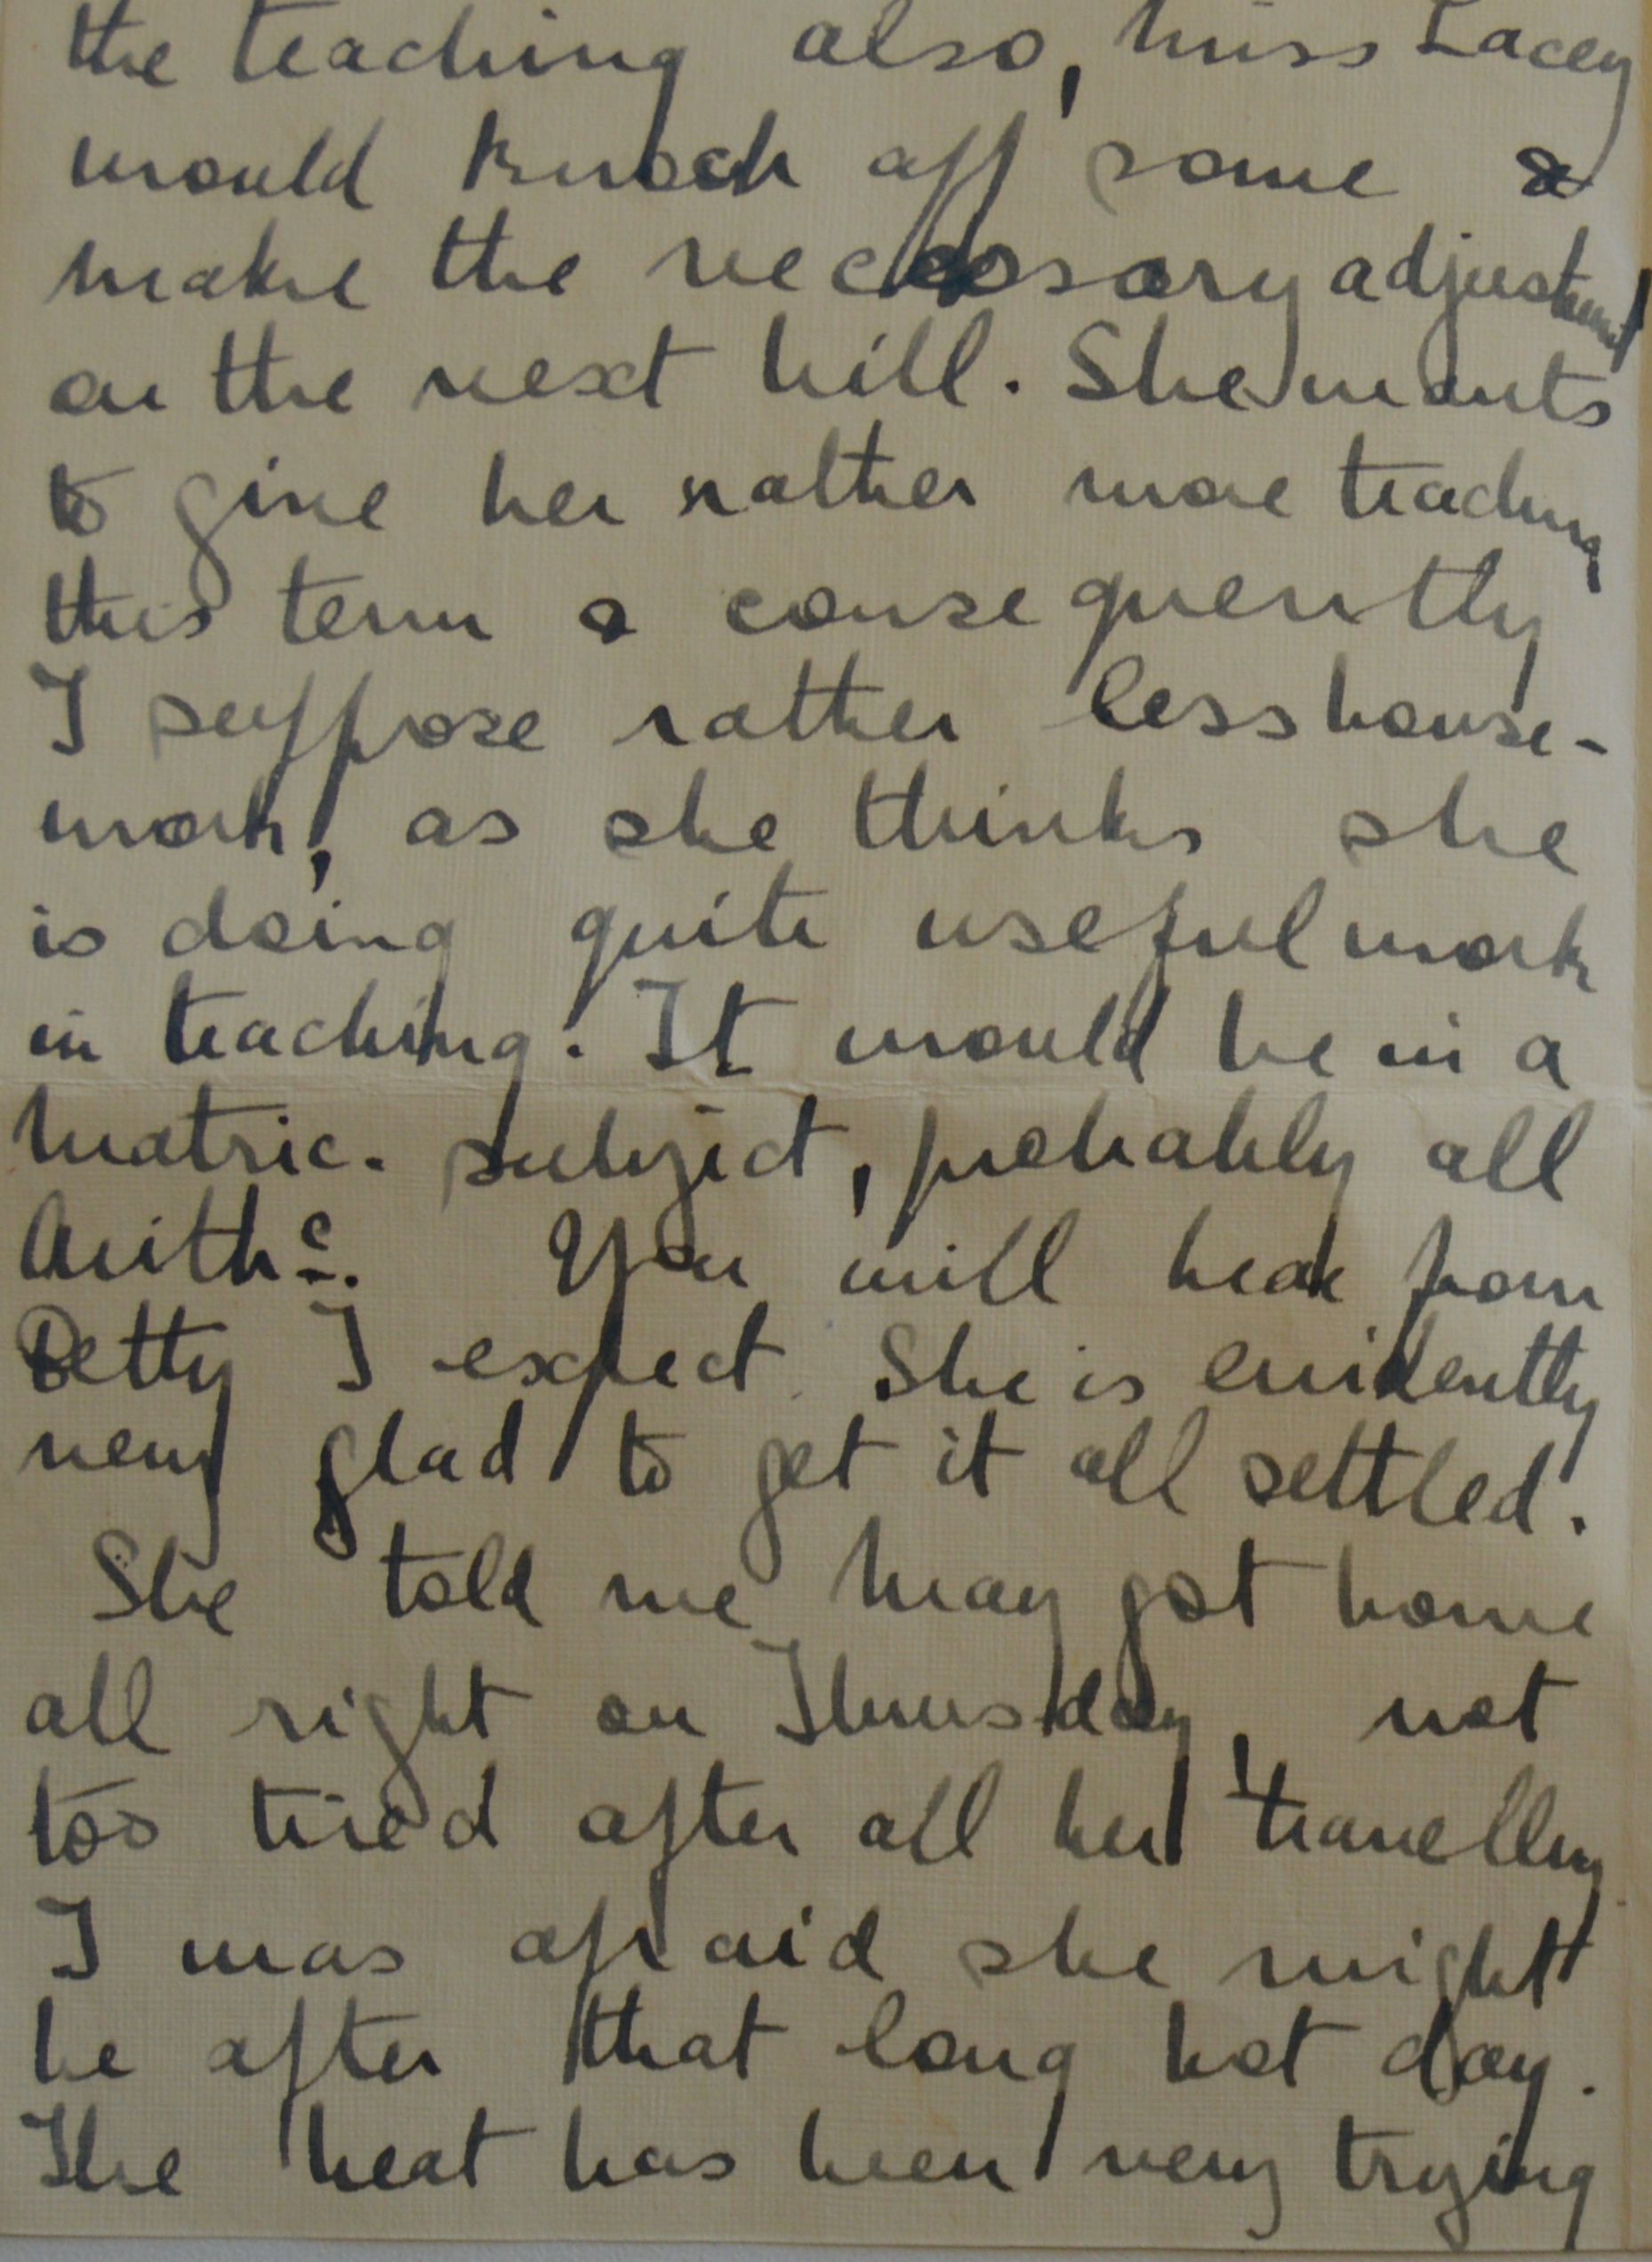 the teaching also, Miss Lacey
would knock off some &
make the necessary adjustment
on the next bill. She wants
to give her rather more teaching
this term & consequently
I suppose rather less house-
work, as she thinks she
is doing quite useful work
in teaching. It would be in a
matric. subject, probably all
Arithc. You will hear from
Betty I expect. She is evidently
very glad to get it all settled.
She told me May got home
all right on Thursday, not
too tired after all her travelling
I was afraid she might
be after that long hot day.
The heat has been very trying